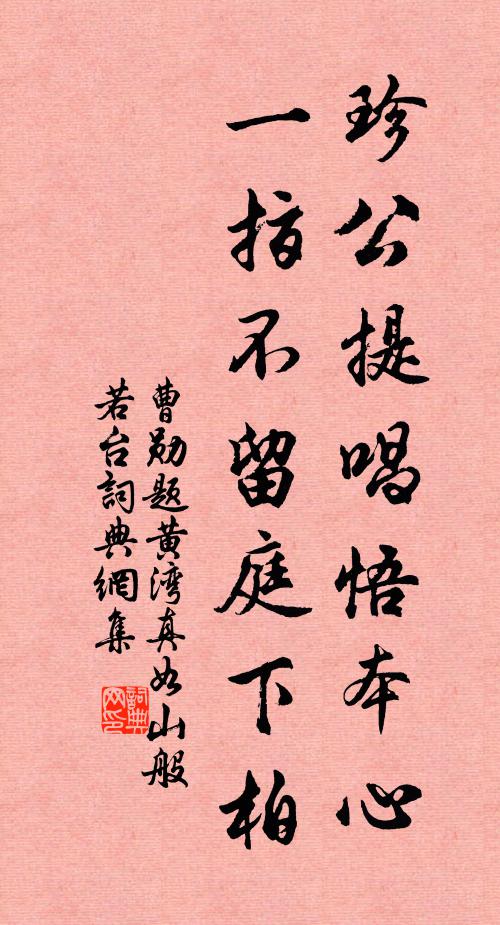 珍公提唱悟本心
一指不留庭下柏
曹勛题黄湾真如山般
若台詞典網集
詞典网印